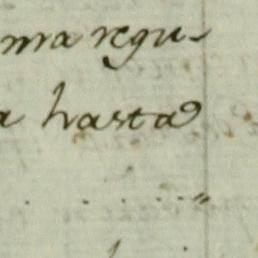 nra regu-
a hasta
. . . . . . "